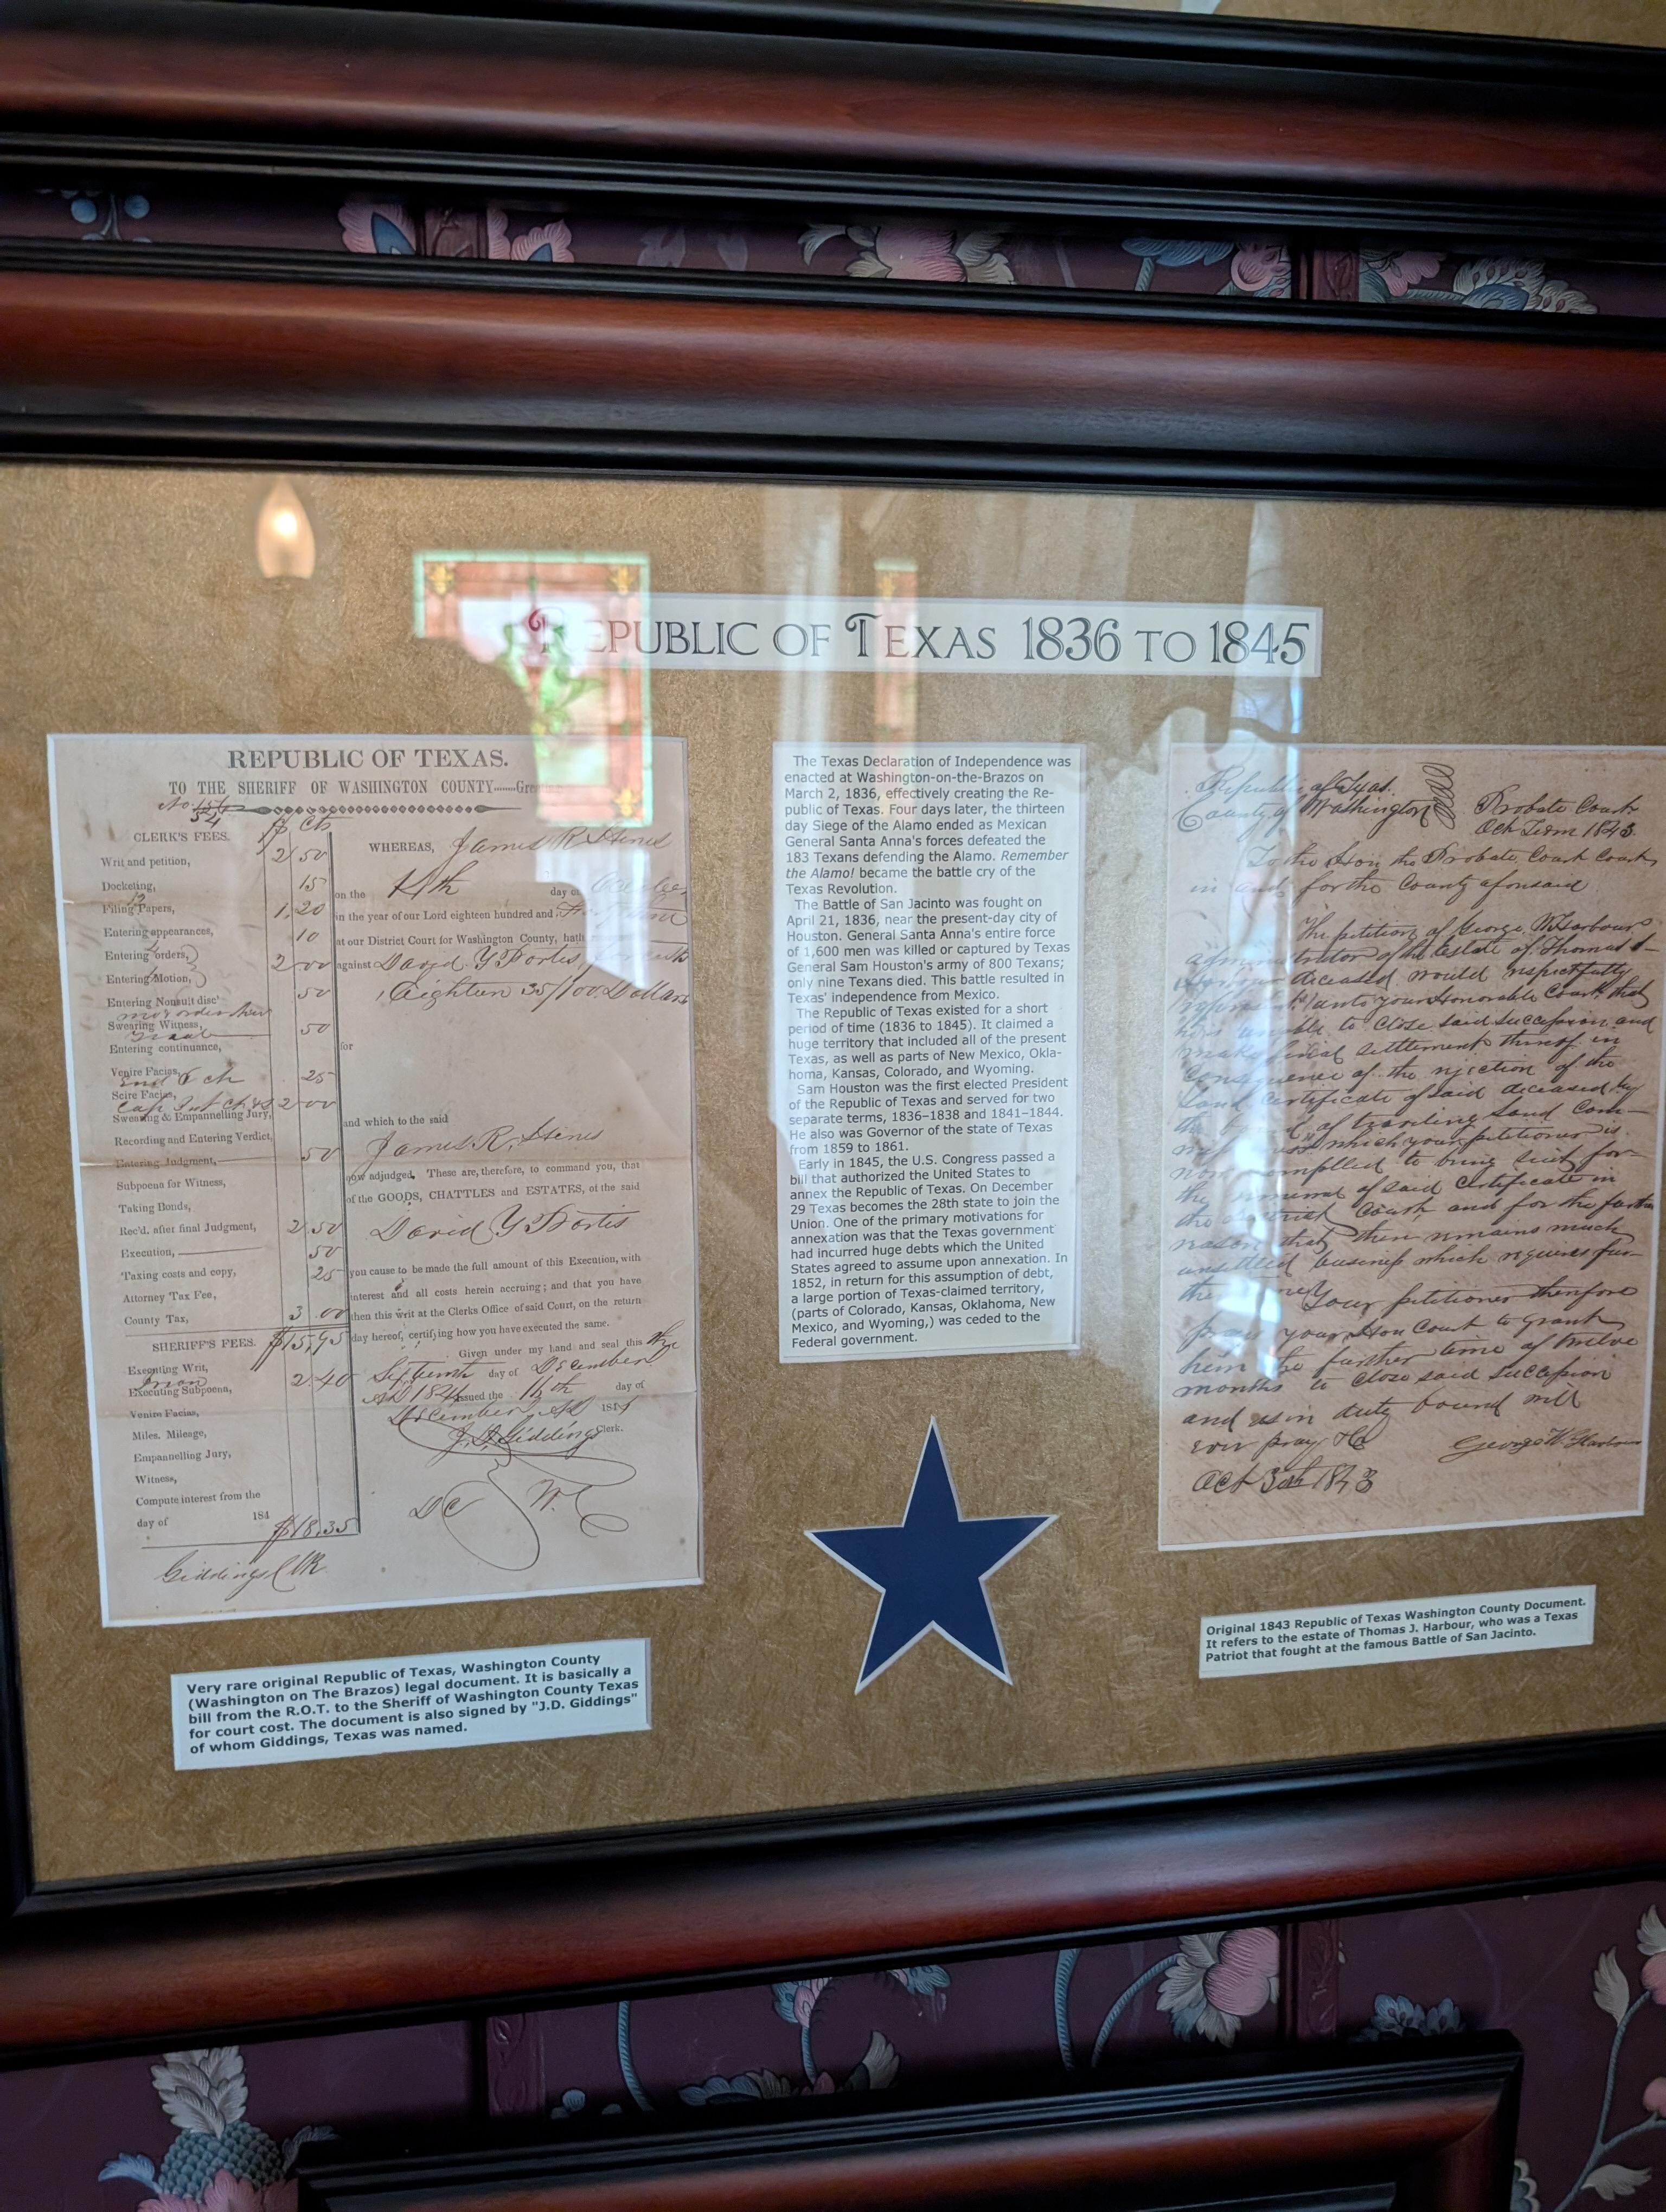 REPUBLIC OF TEXAS 1836 TO 1845
REPUBLIC OF TEXAS.
TO THE SHERIFF OF WASHINGTON COUNTY
$ Cts
CLERK'S FEES.
Writ and petition, 2 50
Docketing, 15
Filing Papers, 1,20
Entering appearances, 10
Entering orders, 2 00
Entering Motion, 50
Entering Nonsuit disc'
Swearing Witness, 50
Entering continuance,
Venire Facias, 25
Scire Facias, 2 00
Swearing & Empannelling Jury,
Recording and Entering Verdict,
Entering Judgment, 50
Subpoena for Witness,
Taking Bonds,
Rec'd. after final Judgment, 2 50
Execution, 50
Taxing costs and copy, 25
Attorney Tax Fee,
County Tax, 3 00
SHERIFF'S FEES. $15,95
Executing Writ,
Executing Subpoena, 2.40
Venire Facias,
Miles. Mileage,
Empannelling Jury,
Witness,
Compute interest from the
day of 184
$18.35
Giddings Clk
WHEREAS, James R. Hines
on the day of
in the year of our Lord eighteen hundred and
at our District Court for Washington County, hath
against David Y Portis
Eighteen 35/100 Dollars
for
and which to the said
James R. Hines
now adjudged. These are, therefore, to command you, that
of the GOODS, CHATTLES and ESTATES, of the said
David Y Portis
you cause to be made the full amount of this Execution, with
interest and all costs herein accruing; and that you have
then this writ at the Clerks Office of said Court, on the return
day hereof, certifying how you have executed the same.
Given under my hand and seal this the
day of December
AD 1844 issued the 16th day of
December AD 184
J.D. Giddings Clerk.
DC W.C
The Texas Declaration of Independence was
enacted at Washington-on-the-Brazos on
March 2, 1836, effectively creating the Re-
public of Texas. Four days later, the thirteen
day Siege of the Alamo ended as Mexican
General Santa Anna's forces defeated the
183 Texans defending the Alamo. Remember
the Alamo! became the battle cry of the
Texas Revolution.
The Battle of San Jacinto was fought on
April 21, 1836, near the present-day city of
Houston. General Santa Anna's entire force
of 1,600 men was killed or captured by Texas
General Sam Houston's army of 800 Texans;
only nine Texans died. This battle resulted in
Texas' independence from Mexico.
The Republic of Texas existed for a short
period of time (1836 to 1845). It claimed a
huge territory that included all of the present
Texas, as well as parts of New Mexico, Okla-
homa, Kansas, Colorado, and Wyoming.
Sam Houston was the first elected President
of the Republic of Texas and served for two
separate terms, 1836–1838 and 1841–1844.
He also was Governor of the state of Texas
from 1859 to 1861.
Early in 1845, the U.S. Congress passed a
bill that authorized the United States to
annex the Republic of Texas. On December
29 Texas becomes the 28th state to join the
Union. One of the primary motivations for
annexation was that the Texas government
had incurred huge debts which the United
States agreed to assume upon annexation. In
1852, in return for this assumption of debt,
a large portion of Texas-claimed territory,
(parts of Colorado, Kansas, Oklahoma, New
Mexico, and Wyoming,) was ceded to the
Federal government.
Republic of Texas
County of Washington
Probate Court
Oct Term 1843.
To the Hon the Probate Court
in and for the County aforesaid
The petition of George W Harbour
administrator of the Estate of Thomas J-
Harbour deceased would respectfully
represent unto your Honorable Court that
he is unable to close said succession and
make final settlement thereof in
consequence of the rejection of the
Land Certificate of said deceased by
the of travelling Land Com-
which your petitioner is
now compelled to bring suit for
the of said Certificate in
the district Court and for the further
reason that there remains much
unsettled business which requires fur-
ther time Your petitioner therefore
prays your Hon Court to grant
him the further time of twelve
months to close said succession
and as in duty bound will
ever pray &c
George W Harbour
Oct 30th 1843
Very rare original Republic of Texas, Washington County
(Washington on The Brazos) legal document. It is basically a
bill from the R.O.T. to the Sheriff of Washington County Texas
for court cost. The document is also signed by "J.D. Giddings"
of whom Giddings, Texas was named.
Original 1843 Republic of Texas Washington County Document.
It refers to the estate of Thomas J. Harbour, who was a Texas
Patriot that fought at the famous Battle of San Jacinto.